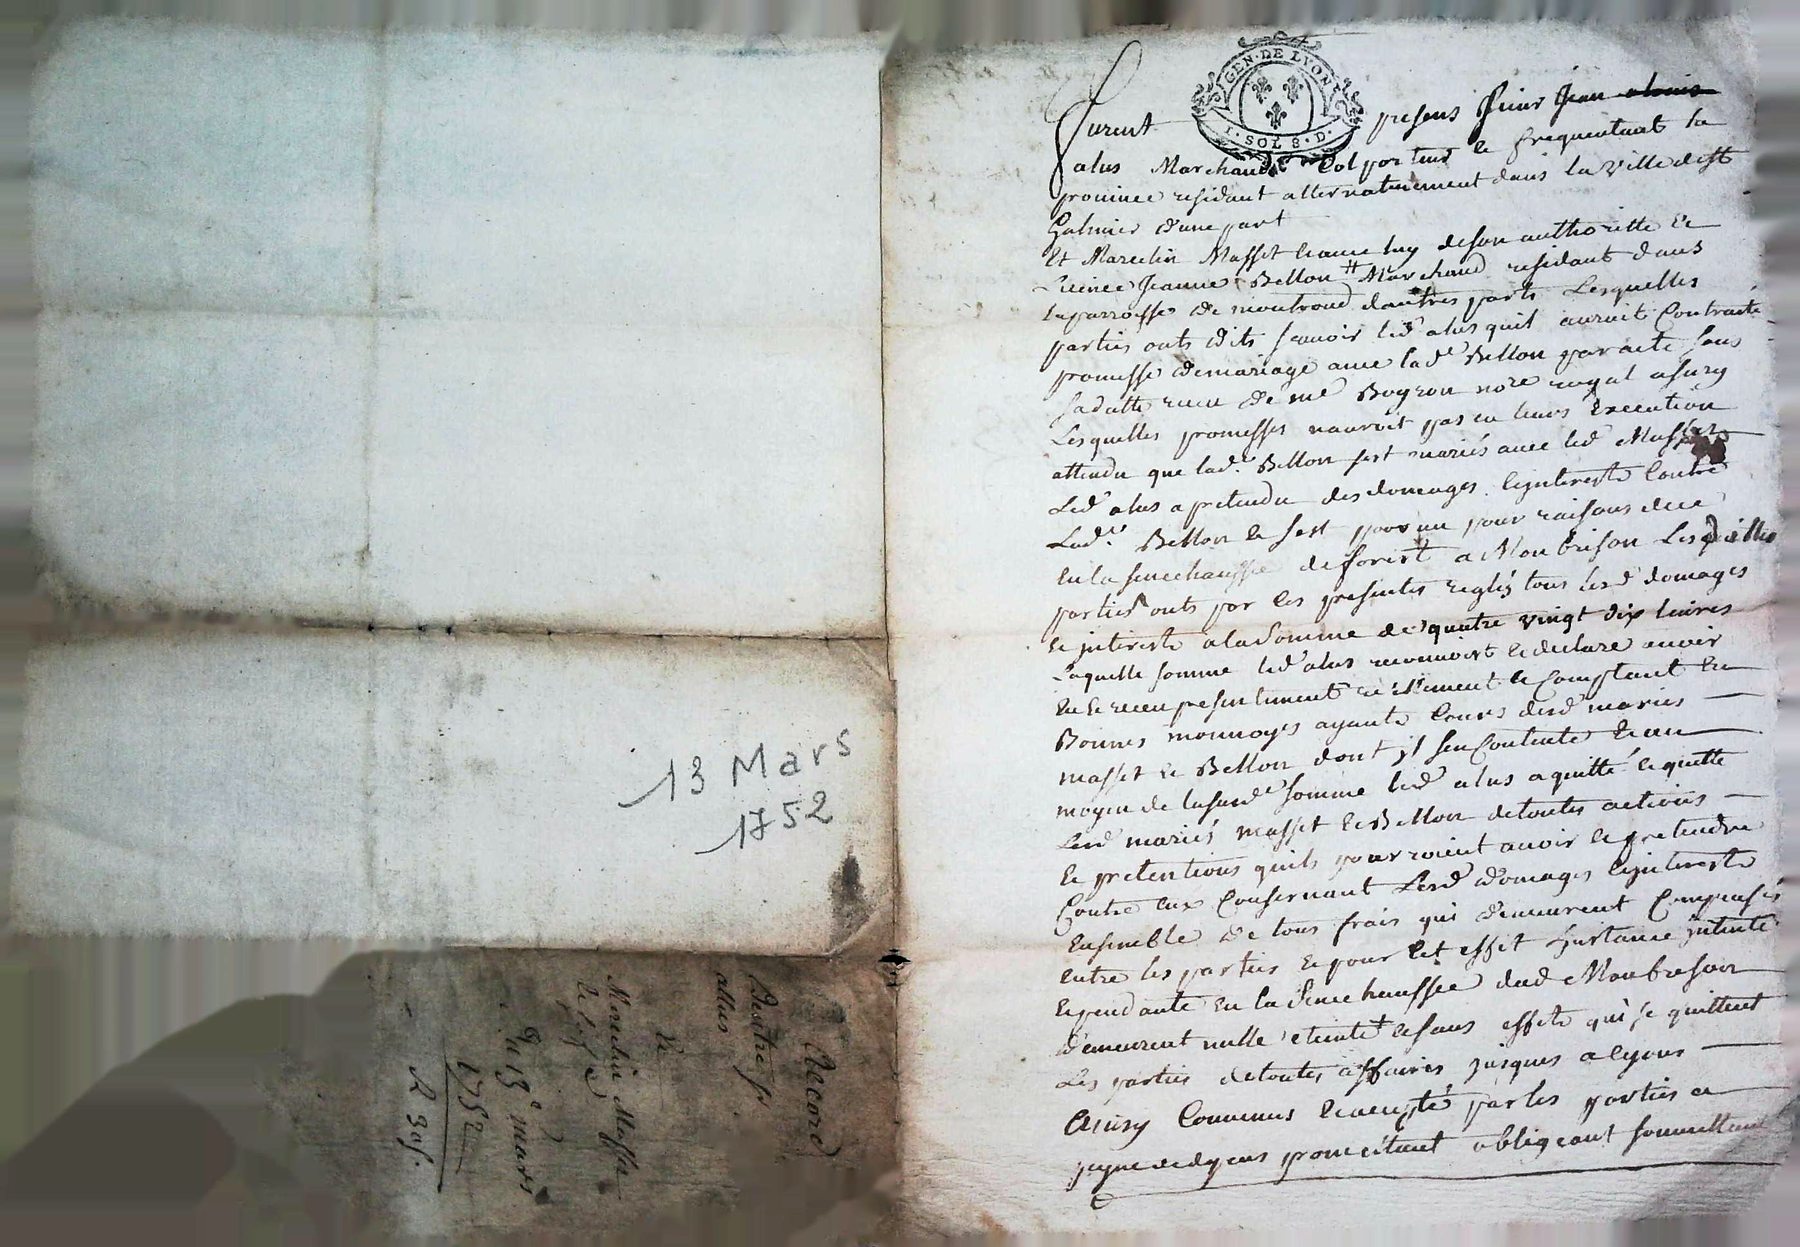 13 Mars
1752
Accord
Dentre sr
allus
&
Marcelin Masset
& la fe
Du 13e mars
1752
R 30s.
GEN · DE LYON
1 · SOL 8 · D ·
Furent presens sieur Jean alouis
alus Marchand Colporteur & frequentant la
province residant alternativement dans la ville de St
Galmier d'une part
Et Marcelin Masset & avec luy de son authoritté &
Licence Jeanne Bellon Marchand residant dans
la parroisse de montrond d'autres parts Lesquelles
parties onts dits scavoir led alus quil auroit Contracté
promesse de mariage avec lad.e Bellon par acte sous
sa datte recu de me Boyron nore royal a sury
Lesquelles promesses nauroit pas eu leurs execution
attendu que lad.e Bellon sest mariés avec led Masset
Led alus a pretendu des domages & jnterests Contre
Lad.e Bellon & sest pourvu pour raisons de ce
en la senechaussée de forest a Monbrison Lesquelles
parties onts par les presentes reglés tous lesd domages
& jnterests a la somme de quatre vingt dix livres
Laquelle somme led alus reconnoist & declare avoir
eu & receu presentement réellement & Comptant en
Bonnes monnoyes ayants Cours desd mariés
masset & Bellon dont jl sen Contente & au
moyen de la susd.e somme led alus a quitté & quitte
Lesd mariés masset & Bellon de toutes actions
& pretentions quils pourroient avoir & pretendre
Contre eux Consernant Lesd domages & jnterests
Ensemble de tous frais qui demeurent Compensés
entre les parties & pour Cet effet Linstance jntenté
& pendante en la Senechaussée dud Monbrison
demeurent nulle eteinte & sans effets qui se quittent
Les parties de toutes affaires jusques a
Ainsy Convenus & accepté par les parties a
peyne de dyens promettant obligeant soumettant